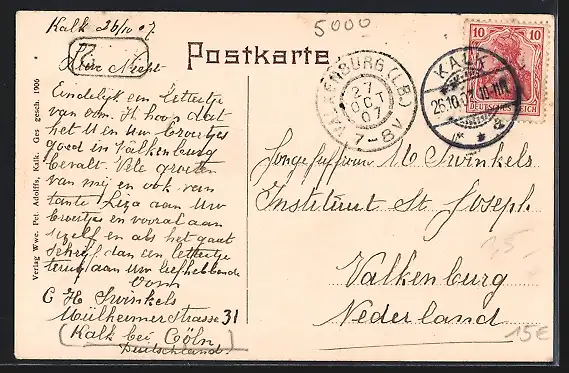 Kalk 26/10 07.
5000
P7
Postkarte
Lieve Nicht
Eindelijk een lettertje
van oom. Ik hoop dat
het U en Uw broertjes
goed in Valkenburg
bevalt. Vele groeten
van mij en ook van
tante Liza aan Uw
broertjes en vooral aan
Uzelf en als het gaat
schrijf dan een lettertje
terug aan uw liefhebbende
Oom
C H Swinkels
Mülheimer Strasse 31
(Kalk bei Cöln)
Deutschland.
Verlag Wwe. Pet. Adolffs, Kalk. Ges gesch. 1906
VALKENBURG (LB.)
27
OCT
07
7-8V
KALK
26.10.07. 10-11N.
* * a
10 10
DEUTSCHES REICH
Jongejuffrouw M Swinkels
Instituut St Joseph
Valkenburg
Nederland
15,-
15€